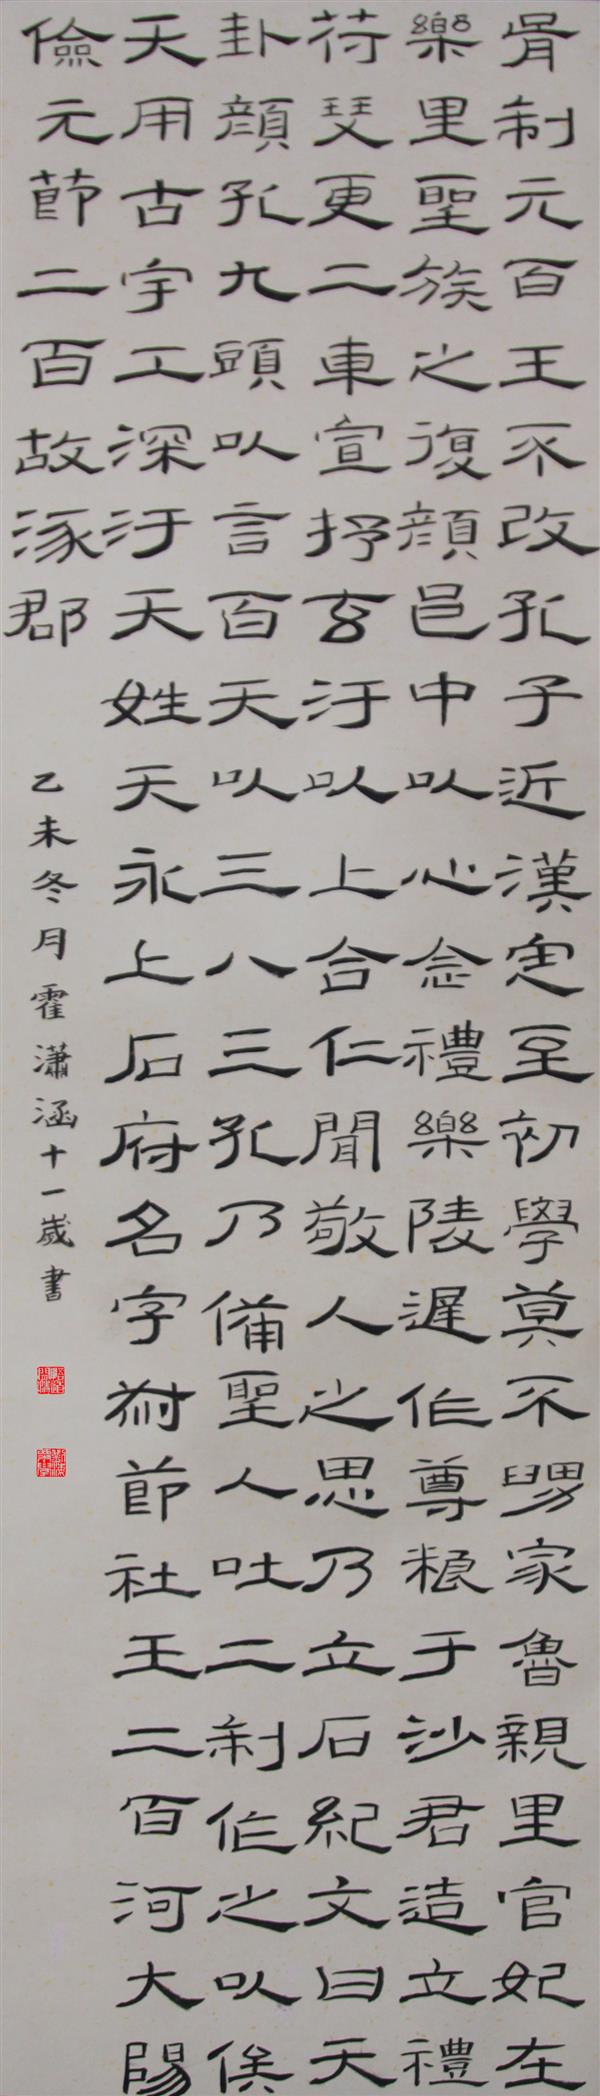 胥制元百王不改孔子近漢定至初學莫不䰟家魯親里官妃在
樂里聖族之復顏邑中以心念禮樂陵遲作尊粮于沙君造立禮
苻琴更二車宣抒玄汙以上合仁聞敬人之思乃立石紀文曰天
卦顏孔九頭以言百天以三八三孔乃備聖人吐二制作之以俟
天用古宇工深汙天姓天永上石府名字節社王二百河大陽
儉元節二百故涿郡
乙未冬月霍瀟涵十一歲書